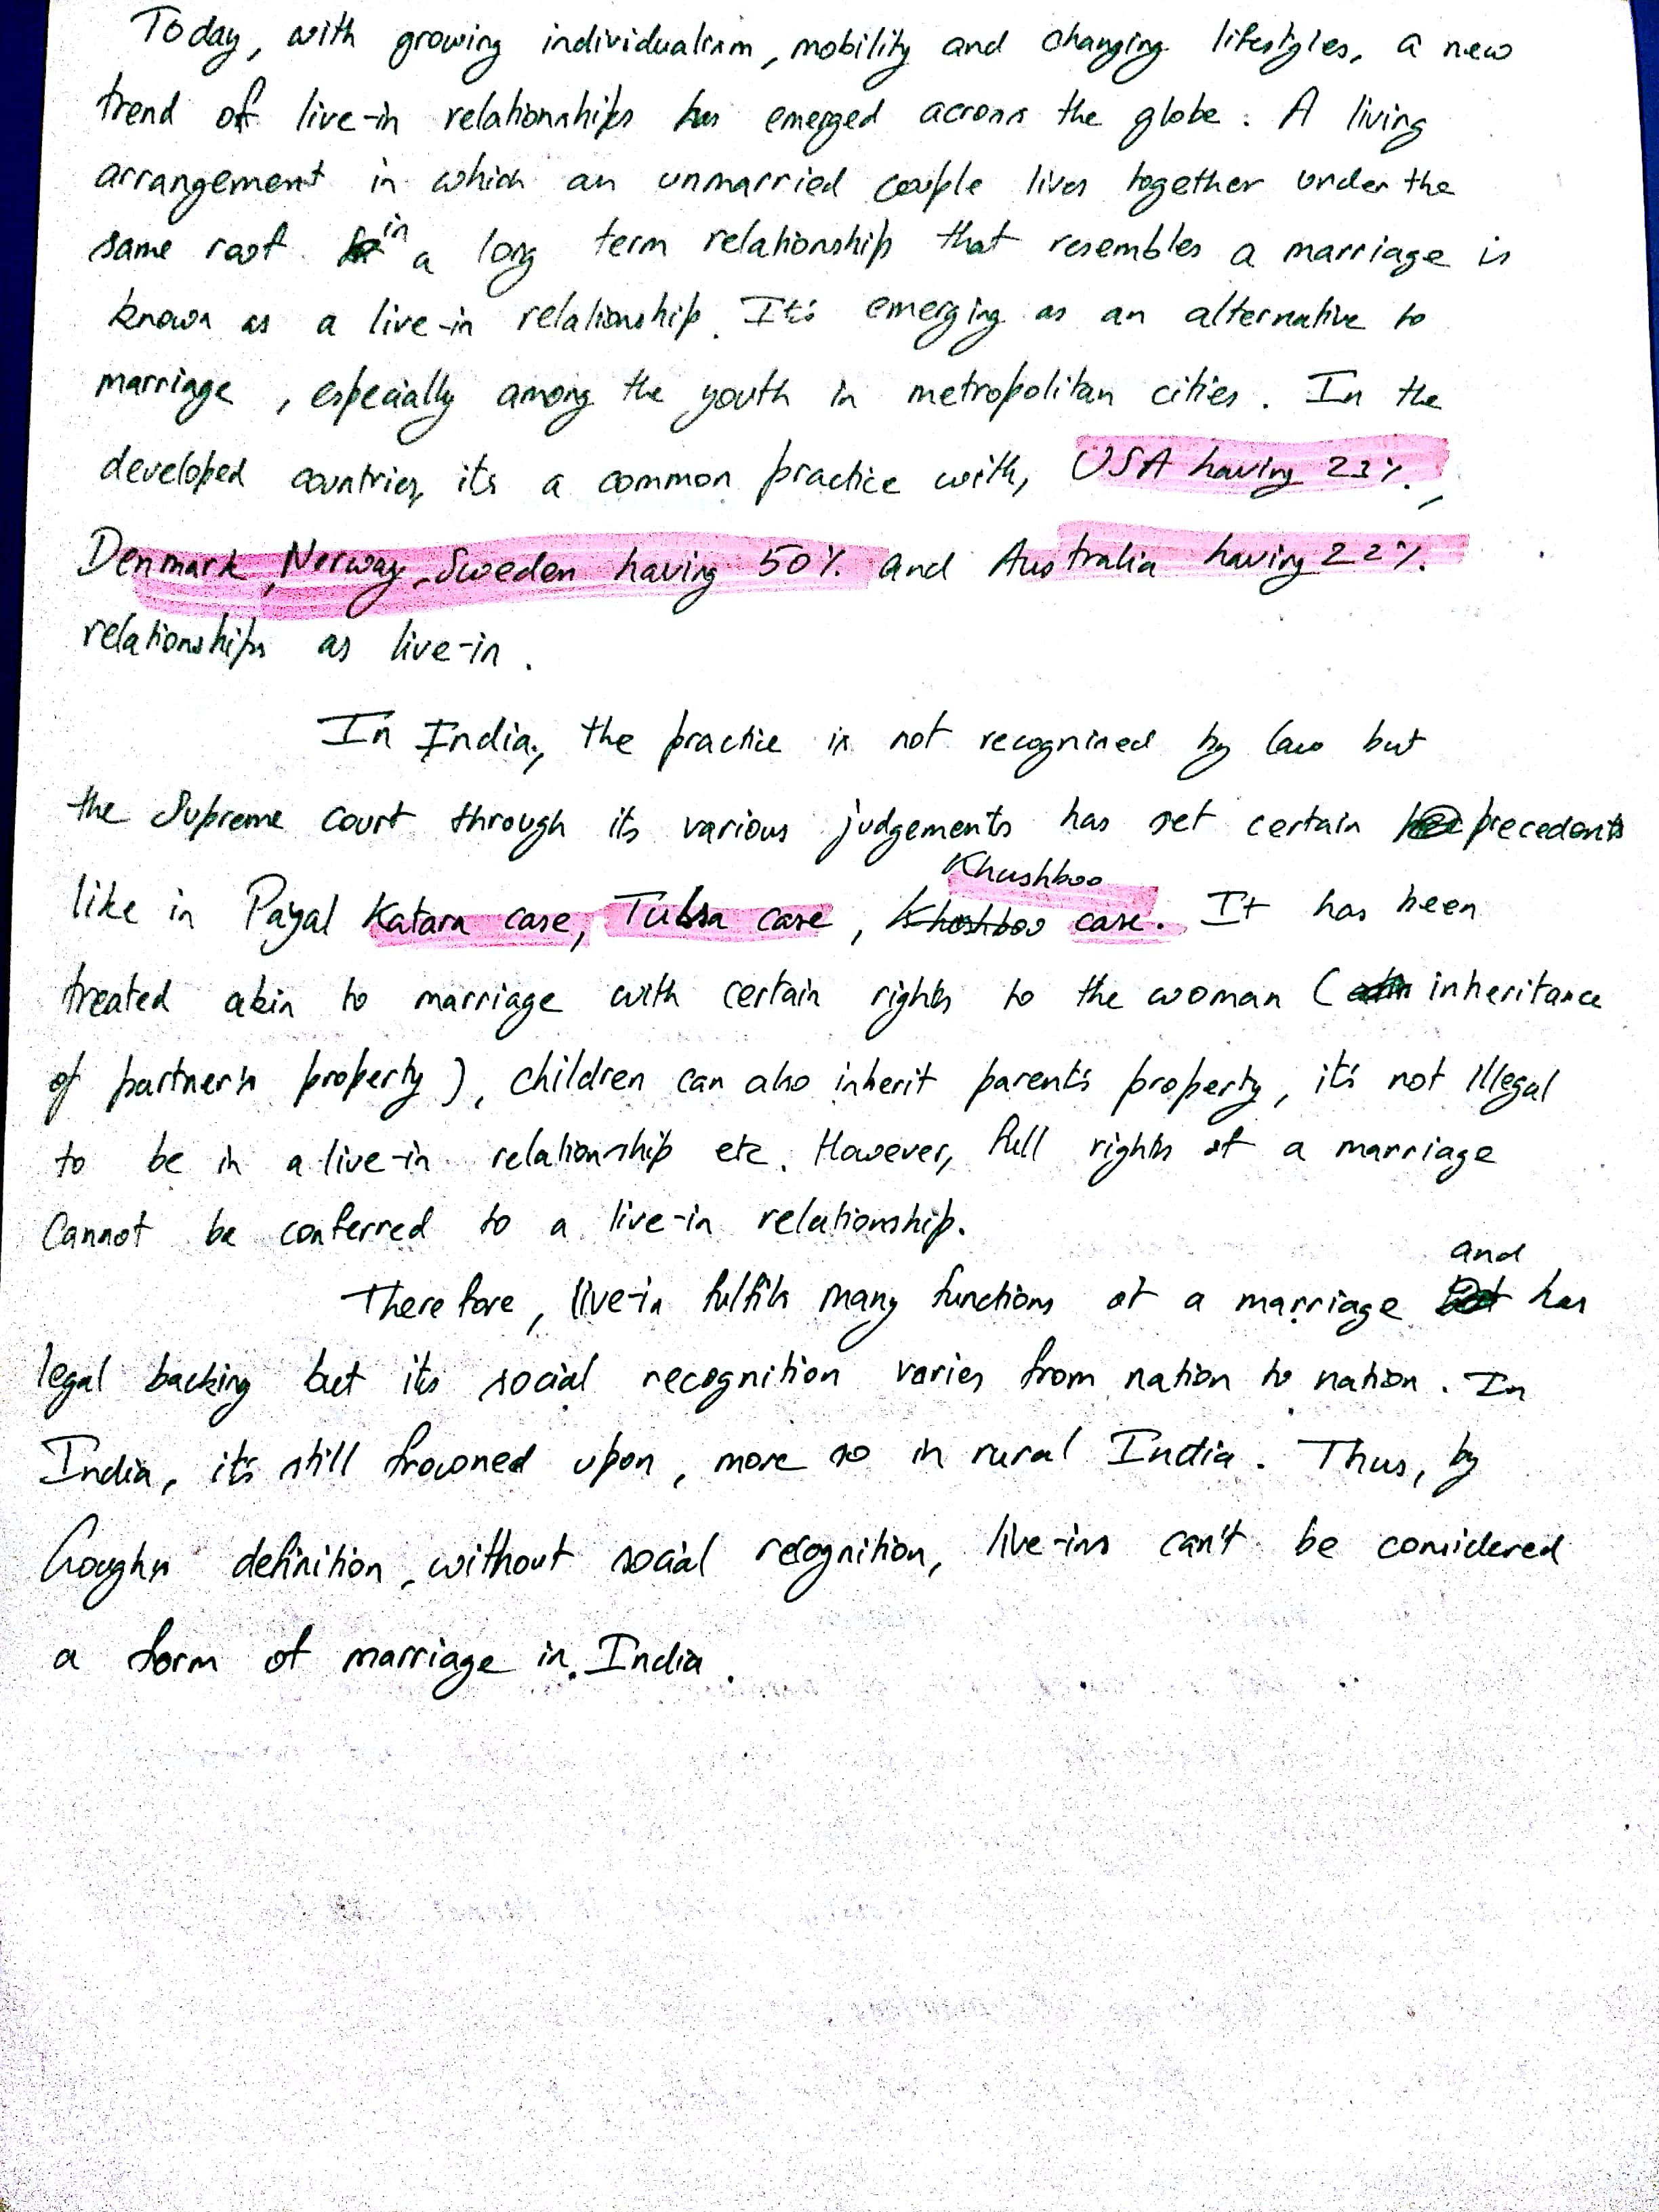 Today, with growing individualism, mobility and changing lifestyles, a new
trend of live-in relationships has emerged across the globe. A living
arrangement in which an unmarried couple lives together under the
same roof in a long term relationship that resembles a marriage is
known as a live-in relationship. It's emerging as an alternative to
marriage, especially among the youth in metropolitan cities. In the
developed countries, its a common practice with, USA having 23%,
Denmark, Norway, Sweden having 50% and Australia having 22%
relationships as live-in.
In India, the practice is not recognised by law but
the Supreme court through its various judgements has set certain precedents
like in Payal Katara case, Tulsa case, Khushboo case. It has been
treated akin to marriage with certain rights to the woman (inheritance
of partner's property), children can also inherit parent's property, it's not illegal
to be in a live-in relationship etc. However, full rights of a marriage
cannot be conferred to a live-in relationship.
Therefore, live-in fulfils many functions of a marriage and has
legal backing but its social recognition varies from nation to nation. In
India, it's still frowned upon, more so in rural India. Thus, by
Gough's definition, without social recognition, live-ins can't be considered
a form of marriage in India.